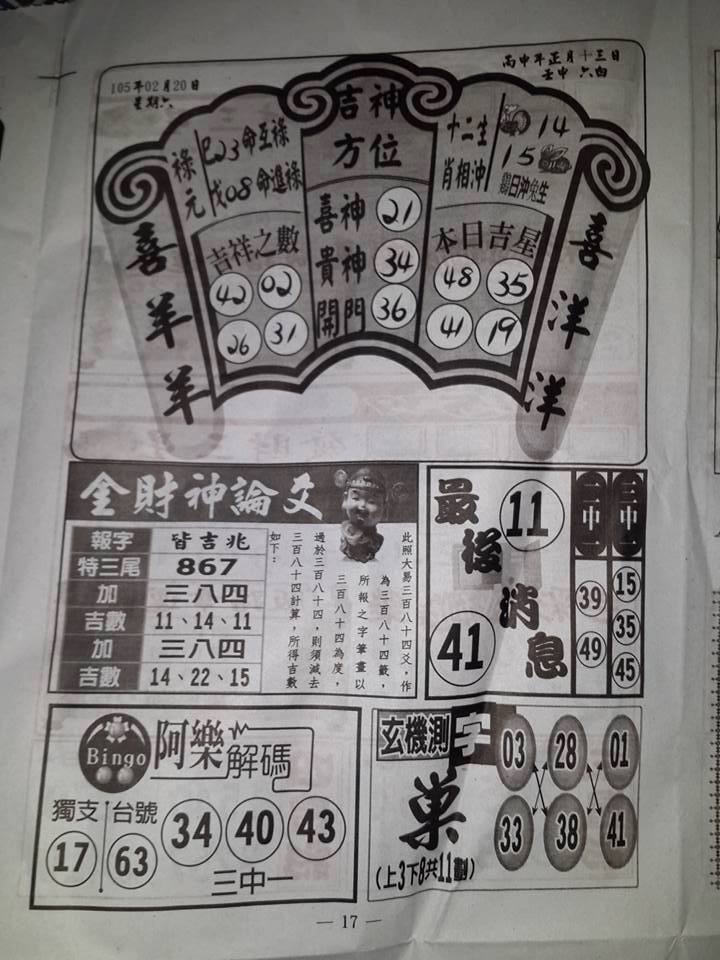 105年02月20日
星期六
丙申年正月十三日
壬申 六白
吉神
方位
喜神 21
貴神 34
開門 36
祿元
巳23命互祿
戊08命進祿
吉祥之數
42 02
26 31
十二生
肖相沖
14
15
日沖兔生
本日吉星
48 35
41 19
喜羊羊
喜洋洋
金財神論爻
報字 皆吉兆
特三尾 867
加 三八四
吉數 11、14、11
加 三八四
吉數 14、22、15
此照大易三百八十四爻，作
為三百八十四籤，
所報之字筆畫以
三百八十四為度，
過於三百八十四，則須減去
三百八十四計算，所得吉數
如下：
最後消息
11
41
二中一
39
49
三中一
15
35
45
Bingo
阿樂解碼
獨支
17
台號
63
34 40 43
三中一
玄機測字
巣
(上3下8共11劃)
03 28 01
33 38 41
— 17 —